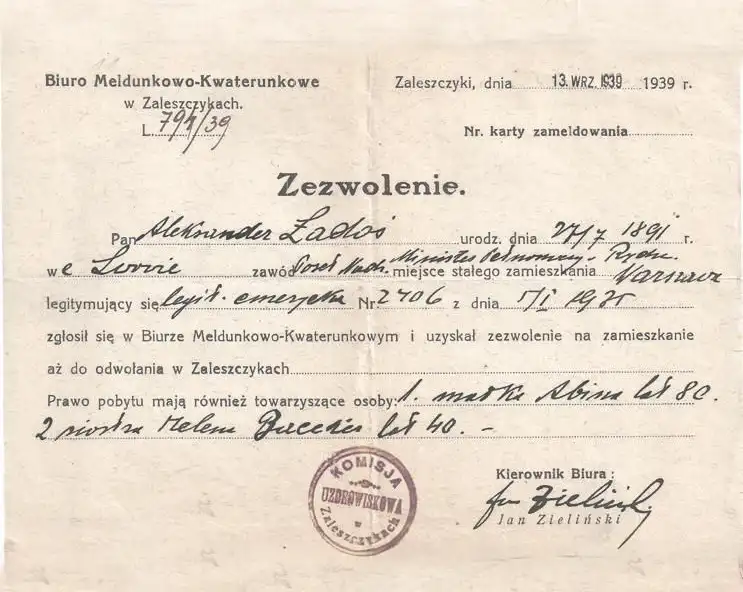 Biuro Meldunkowo-Kwaterunkowe
w Zaleszczykach.
L. 794/39
Zaleszczyki, dnia 13. WRZ. 1939 1939 r.
Nr. karty zameldowania
Zezwolenie.
Pan Aleksander Ładoś urodz. dnia 27/7 1891 r.
we Lwowie zawód Poseł Nadz. Minister Pełnomocny miejsce stałego zamieszkania Warszawa
legitymujący się legit. emerycka Nr. 2406 z dnia
zgłosił się w Biurze Meldunkowo-Kwaterunkowym i uzyskał zezwolenie na zamieszkanie
aż do odwołania w Zaleszczykach
Prawo pobytu mają również towarzyszące osoby: 1. matka Abina lat 80.
2 siostra Helena lat 40. -
KOMISJA
UZDROWISKOWA
w
Zaleszczykach
Kierownik Biura :
Jan Zieliński